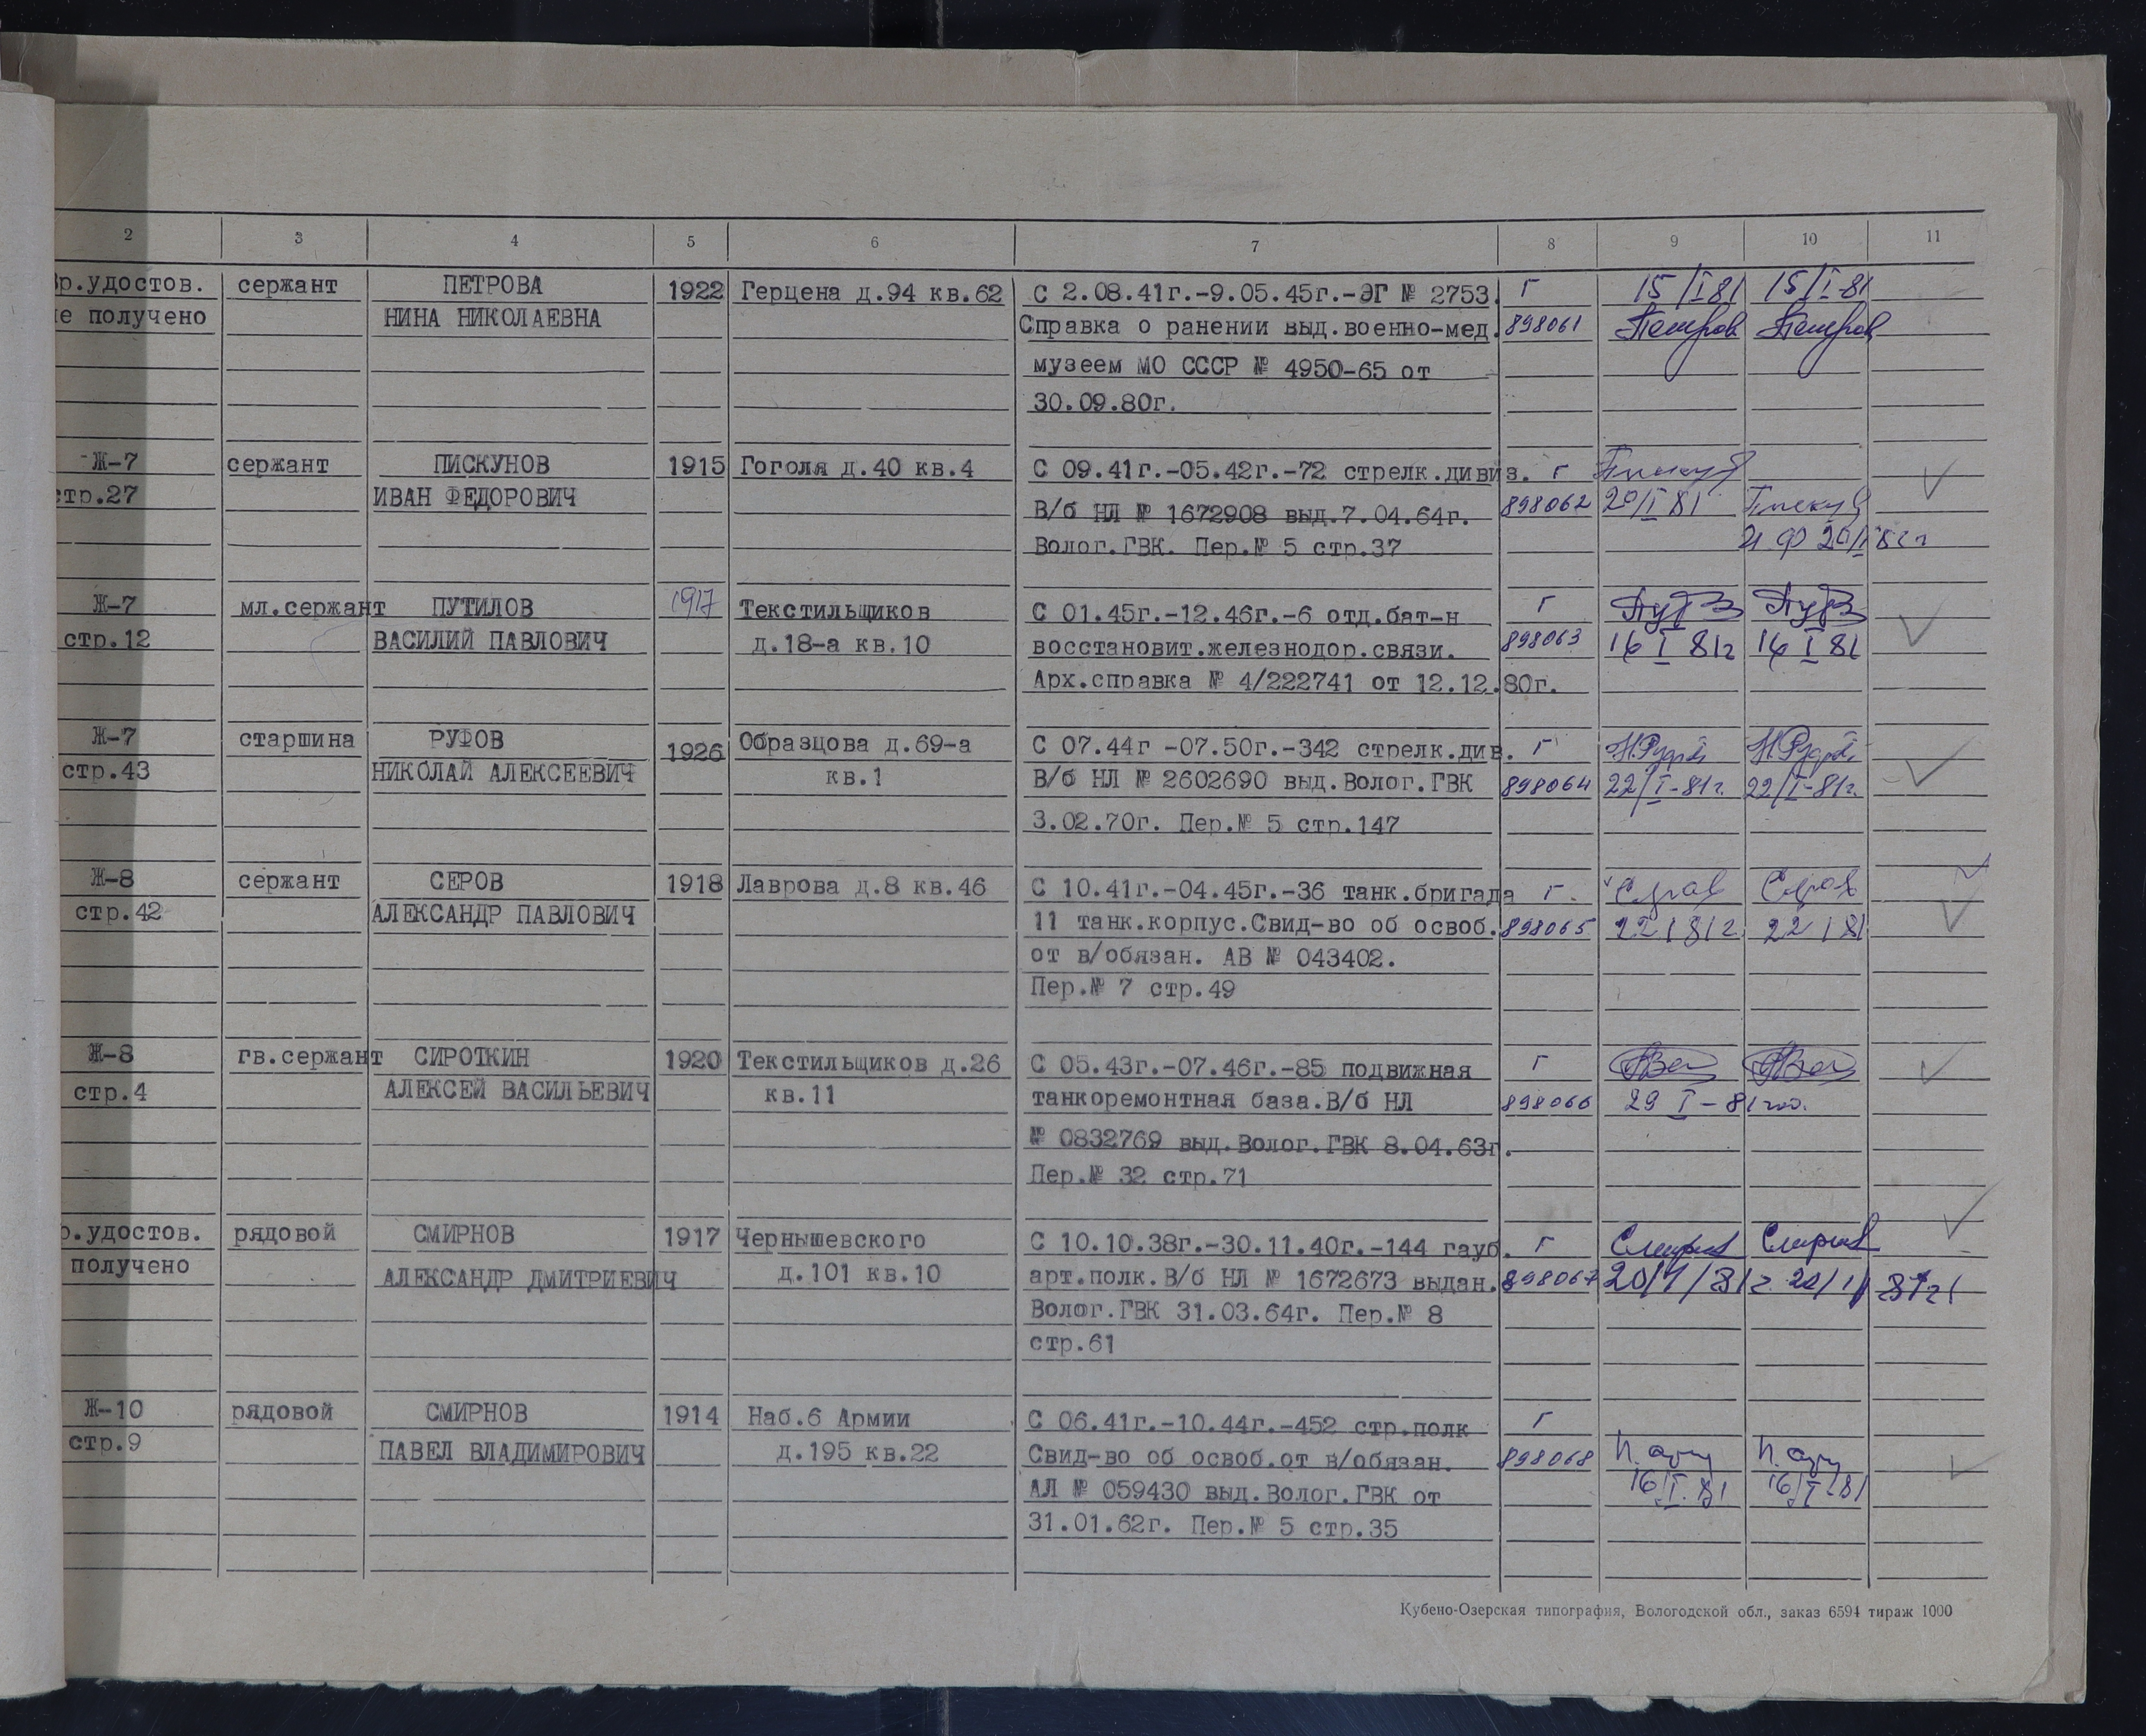 2 3 4 5 6 7 8 9 10 11
р.удостов. сержант ПЕТРОВА 1922 Герцена д.94 кв.62 С 2.08.41г.-9.05.45г.-ЭГ № 2753. Г 15/I 81 15/I-81
е получено НИНА НИКОЛАЕВНА Справка о ранении выд.военно-мед. 898061 Петров Петров
музеем МО СССР № 4950-65 от
30.09.80г.
Ж-7 сержант ПИСКУНОВ 1915 Гоголя д.40 кв.4 С 09.41г.-05.42г.-72 стрелк.дивиз. г
стр.27 ИВАН ФЕДОРОВИЧ В/б НЛ № 1672908 выд.7.04.64г. 898062 20/I 81
Волог.ГВК. Пер.№ 5 стр.37
Ж-7 мл.сержант ПУТИЛОВ 1917 Текстильщиков С 01.45г.-12.46г.-6 отд.бат-н г
стр.12 ВАСИЛИЙ ПАВЛОВИЧ д.18-а кв.10 восстановит.железнодор.связи. 898063 16 I 81г 16 I 81
Арх.справка № 4/222741 от 12.12.80г.
Ж-7 старшина РУФОВ 1926 Образцова д.69-а С 07.44г -07.50г.-342 стрелк.див. г
стр.43 НИКОЛАЙ АЛЕКСЕЕВИЧ кв.1 В/б НЛ № 2602690 выд.Волог.ГВК 898064 22/I-81г. 22/I-81г.
3.02.70г. Пер.№ 5 стр.147
Ж-8 сержант СЕРОВ 1918 Лаврова д.8 кв.46 С 10.41г.-04.45г.-36 танк.бригада г. Серов Серов
стр.42 АЛЕКСАНДР ПАВЛОВИЧ 11 танк.корпус.Свид-во об освоб. 898065 22 1 81г 22 1 81
от в/обязан. АВ № 043402.
Пер.№ 7 стр.49
Ж-8 гв.сержант СИРОТКИН 1920 Текстильщиков д.26 С 05.43г.-07.46г.-85 подвижная г
стр.4 АЛЕКСЕЙ ВАСИЛЬЕВИЧ кв.11 танкоремонтная база.В/б НЛ 898066 29 I-81
№ 0832769 выд.Волог.ГВК 8.04.63г.
Пер.№ 32 стр.71
р.удостов. рядовой СМИРНОВ 1917 Чернышевского С 10.10.38г.-30.11.40г.-144 гауб. г Смирнов Смирнов
получено АЛЕКСАНДР ДМИТРИЕВИЧ д.101 кв.10 арт.полк.В/б НЛ № 1672673 выдан. 898067 20/1/81г. 20/1 81г
Волог.ГВК 31.03.64г. Пер.№ 8
стр.61
Ж-10 рядовой СМИРНОВ 1914 Наб.6 Армии С 06.41г.-10.44г.-452 стр.полк г
стр.9 ПАВЕЛ ВЛАДИМИРОВИЧ д.195 кв.22 Свид-во об освоб.от в/обязан. 898068
АЛ № 059430 выд.Волог.ГВК от 16/I.81 16/I-81
31.01.62г. Пер.№ 5 стр.35
Кубено-Озерская типография, Вологодской обл., заказ 6594 тираж 1000